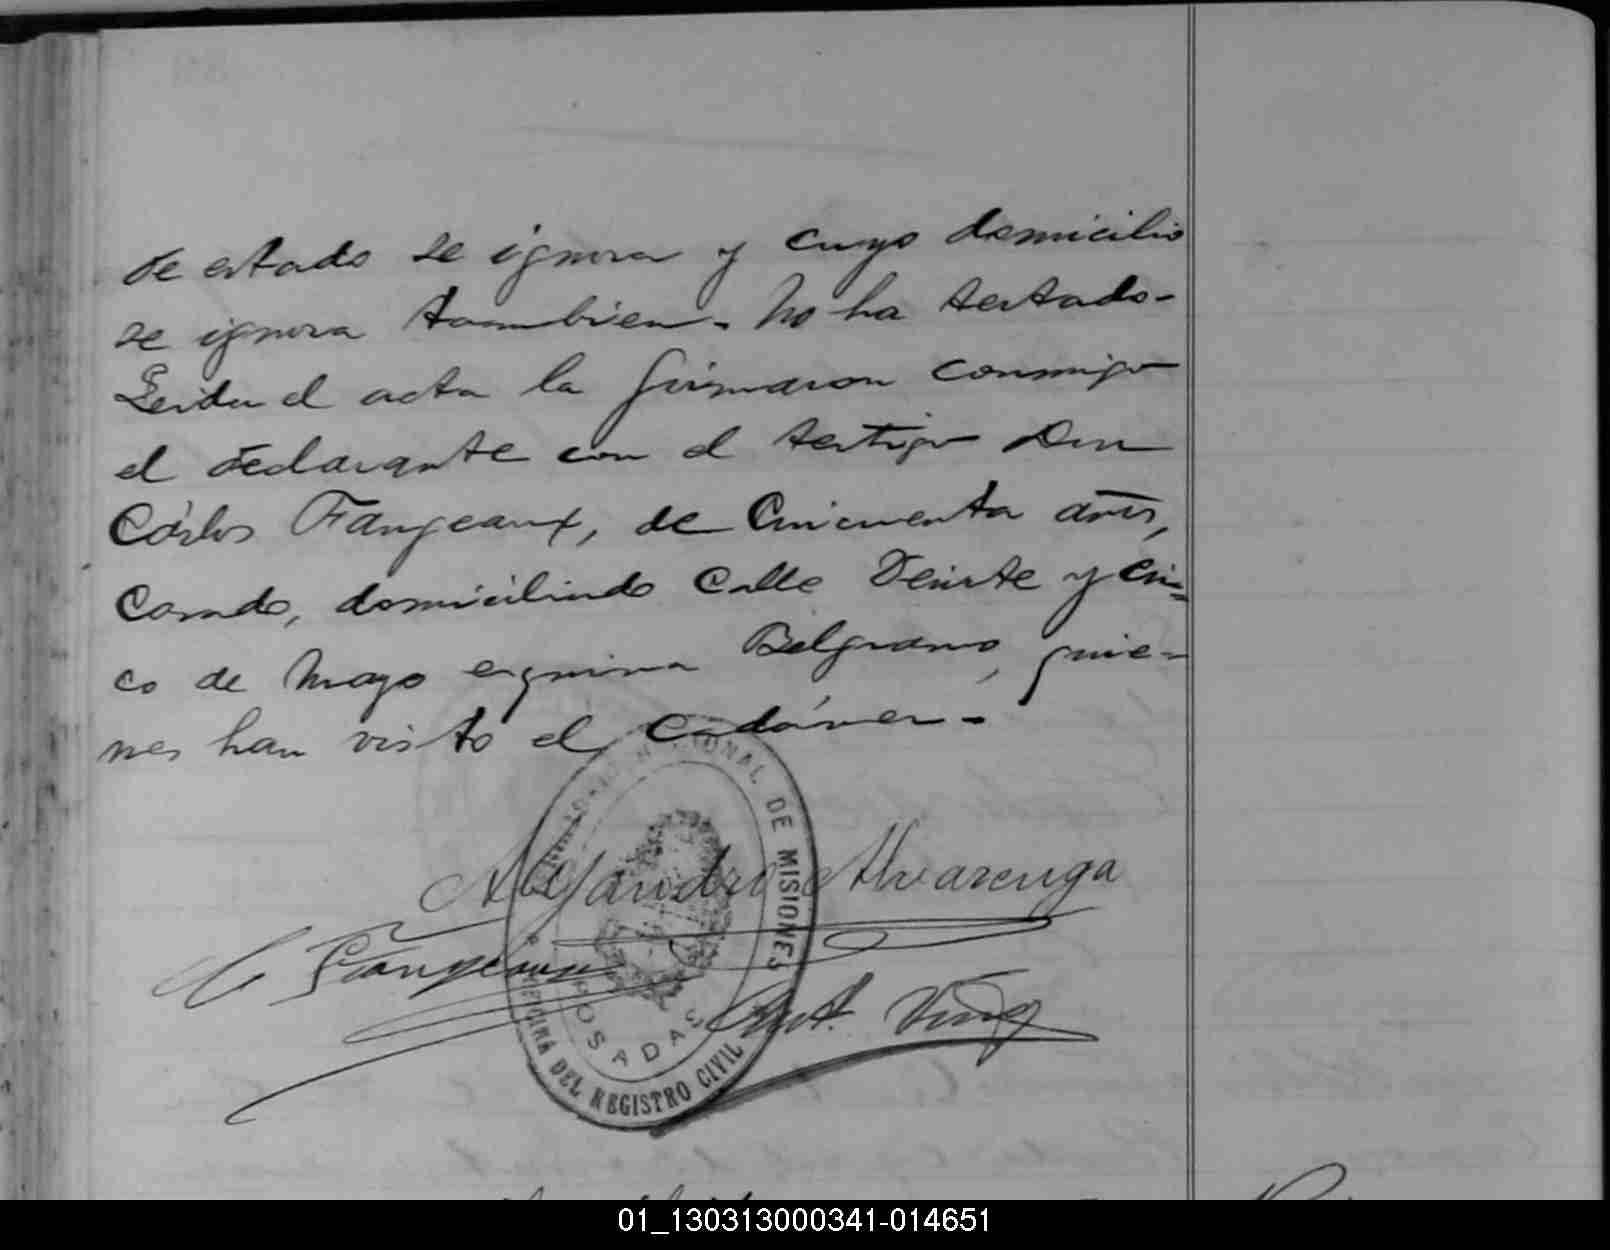 de estado se ignora y cuyo domicilio
se ignora tambien. No ha testado-
Leida el acta la firmaron conmigo
el declarante con el testigo Don
Cárlos Fangeaux, de Cincuenta años,
Casado, domiciliado Calle Veinte y Cin-
co de Mayo esquina Belgrano, quie-
nes han visto el Cadáver-
NACIONAL DE MISIONES
Alejandro Alvarenga
C Fangeaux
POSADAS
OFICINA DEL REGISTRO CIVIL
01_130313000341-014651